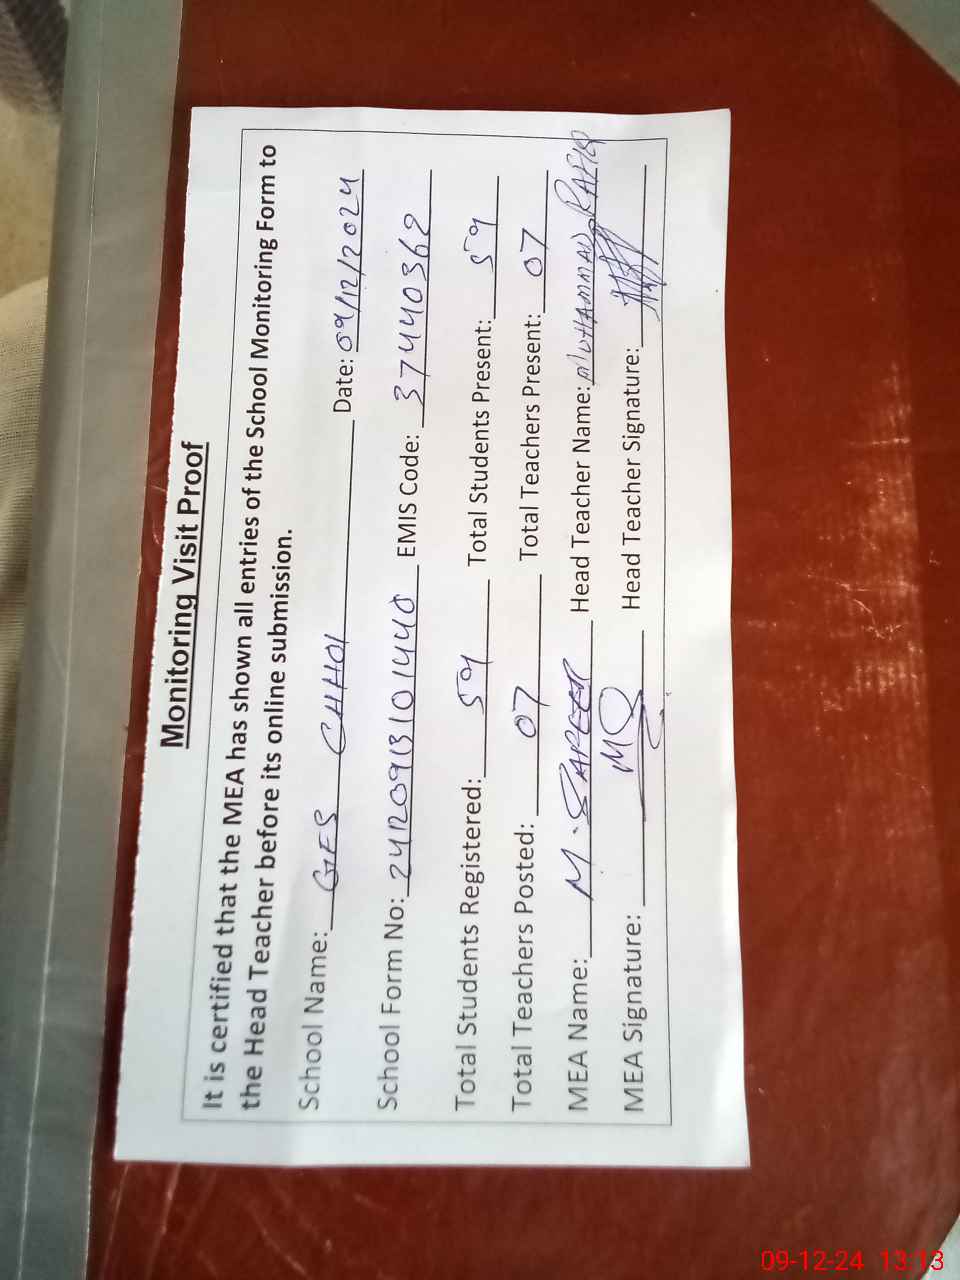 Monitoring Visit Proof
It is certified that the MEA has shown all entries of the School Monitoring Form to
the Head Teacher before its online submission.
School Name: GES CHHOI Date: 09/12/2024
School Form No: EMIS Code: 37440362
Total Students Registered: 59 Total Students Present: 59
Total Teachers Posted: 07 Total Teachers Present: 07
MEA Name: M. Head Teacher Name: MUHAMMAD RAFIQ
MEA Signature: Head Teacher Signature:
09-12-24 13:13